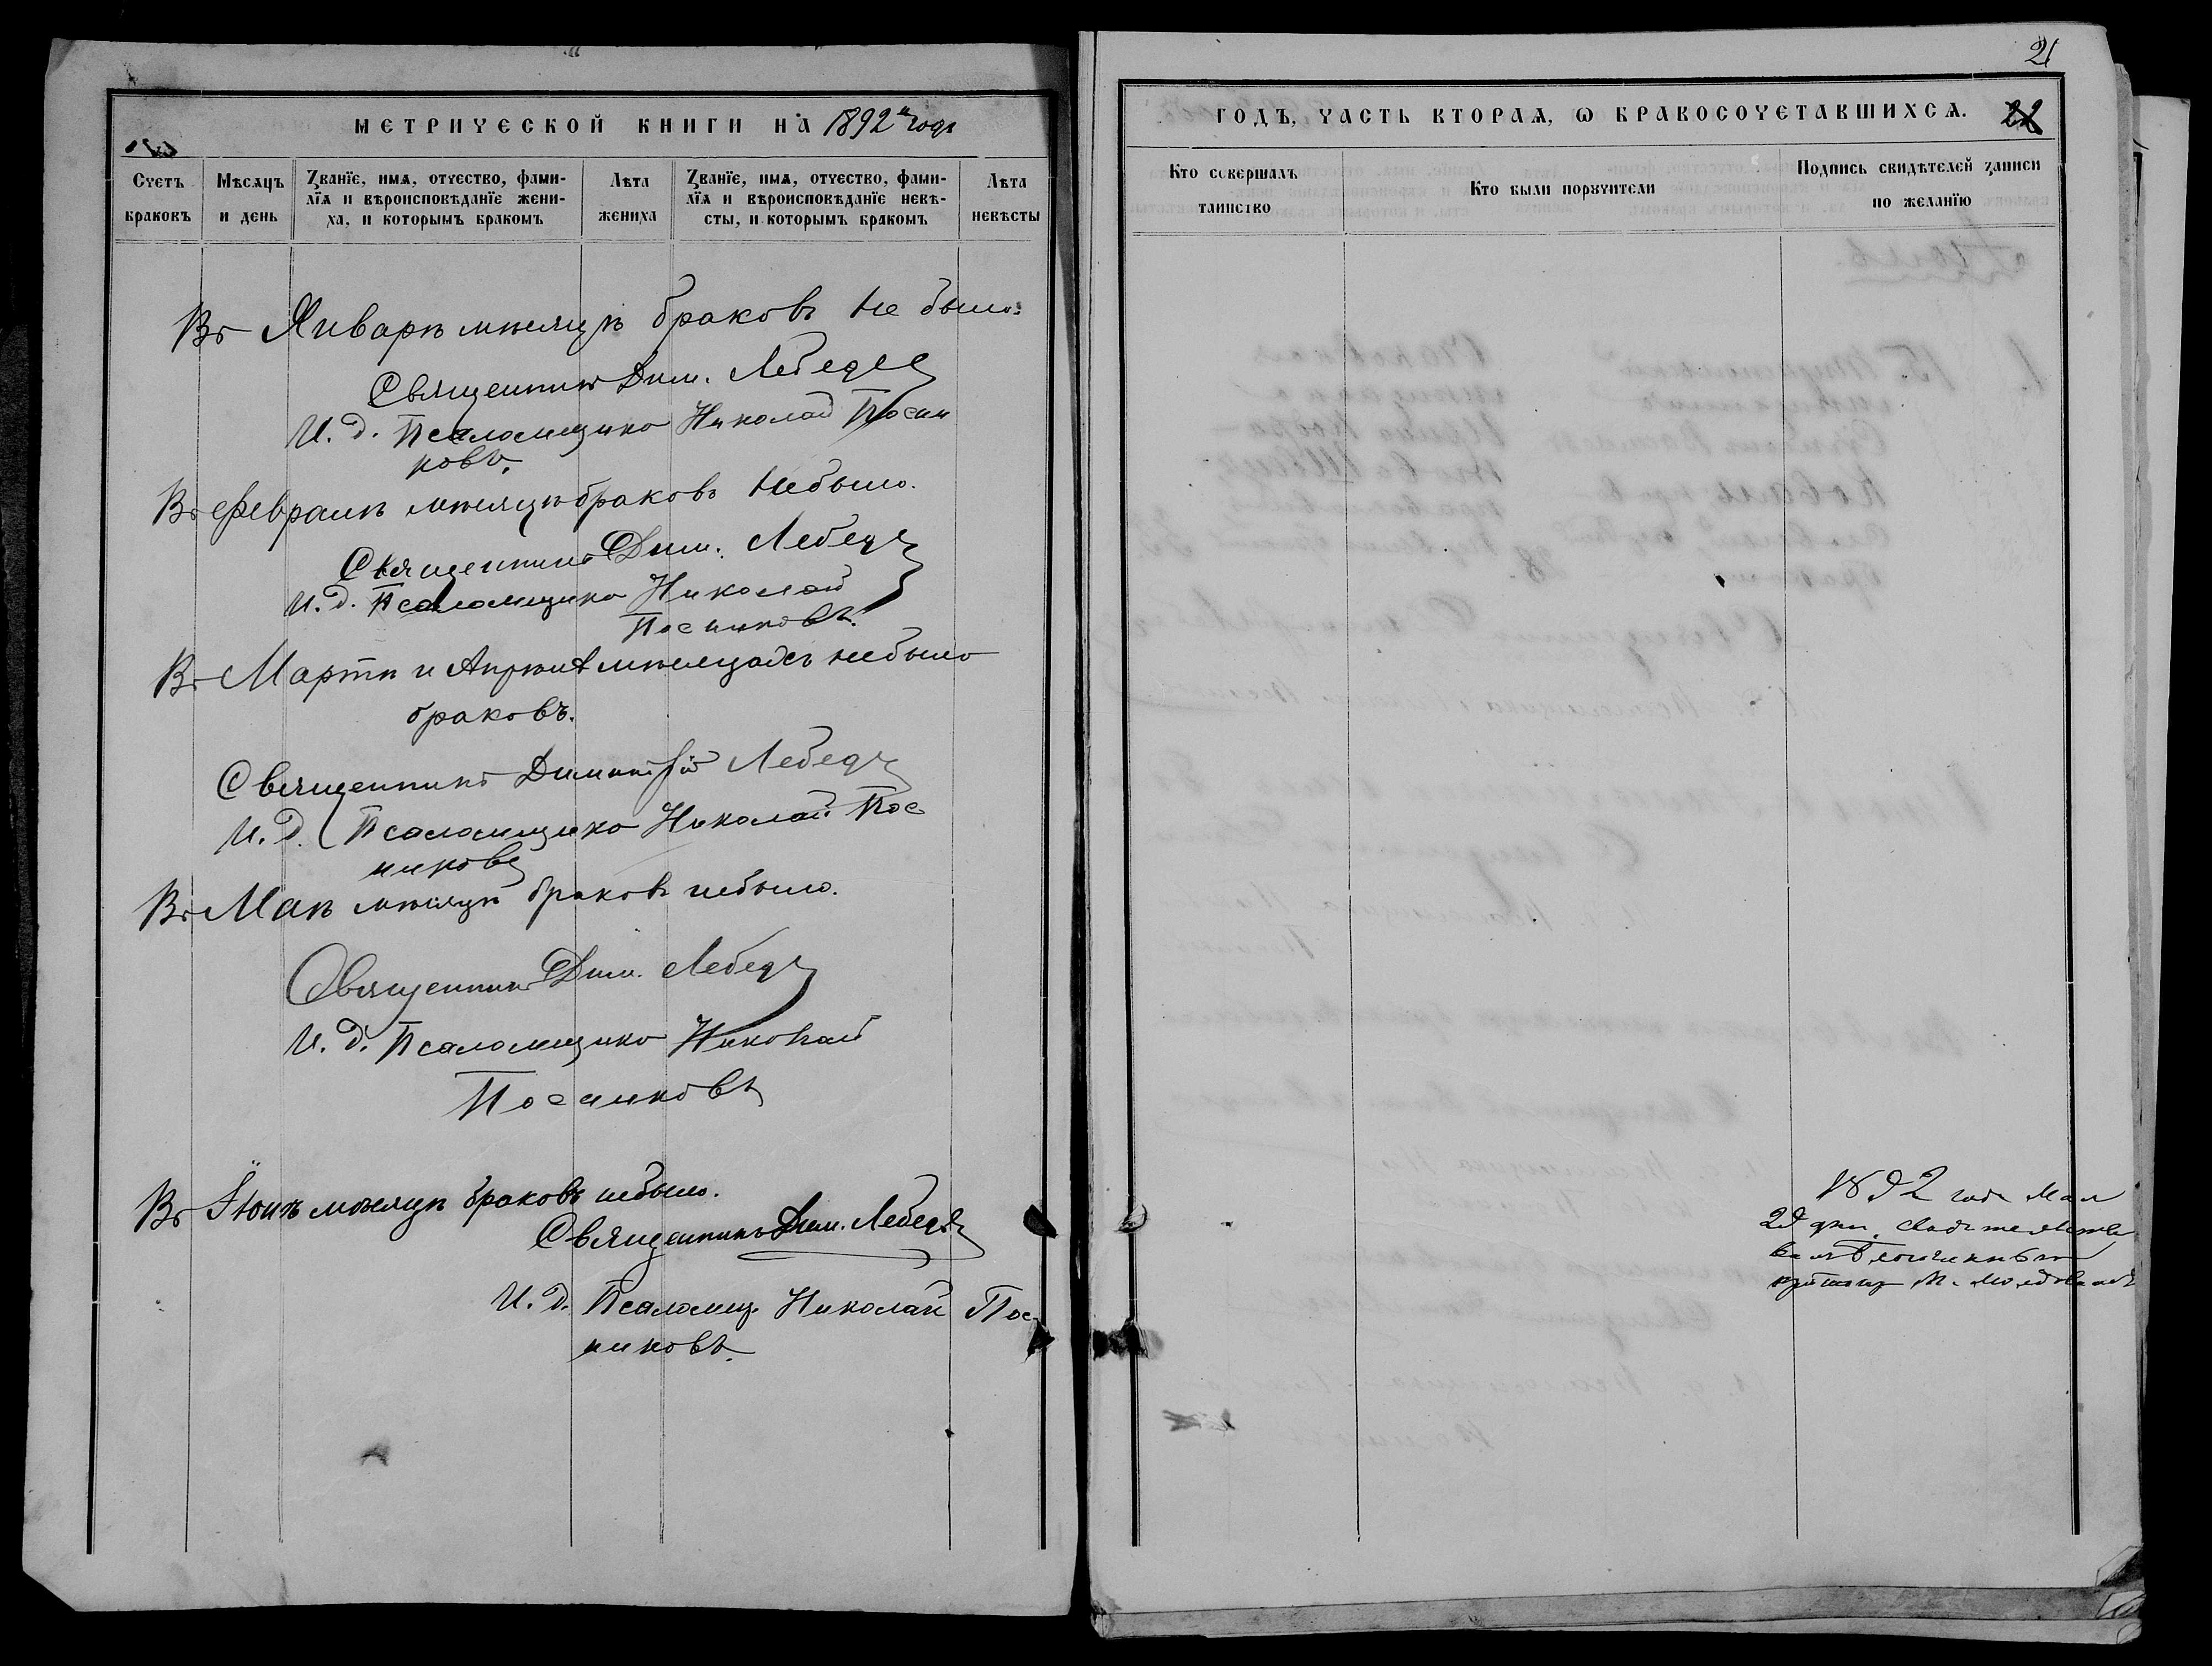 МЕТРИЧЕСКОЙ КНИГИ НА 1892 й годъ
Счетъ браковъ
Мѣсяцъ и день
Званїе, имѧ, отчество, фами-
лїѧ и вѣроисповѣданїе жени-
ха, и которымъ бракомъ
Лѣта жениха
Званїе, имѧ, отчество, фами-
лїѧ и вѣроисповѣданїе невѣ-
сты, и которымъ бракомъ
Лѣта невѣсты
Въ Январѣ мѣсяцѣ браковъ не было.
Священникъ Дим. Лебедев
И. д. Псаломщика Николай Посни
ковъ.
Въ Февралѣ мѣсяцѣ браковъ небыло.
Священникъ Дим. Лебедев
И. д. Псаломщика Николай
Посниковъ.
Въ Мартѣ и Апрѣлѣ мѣсяцахъ небыло
браковъ.
Священникъ Димитрій Лебедев
И. д. Псаломщика Николай Пос
никовъ
Въ Маѣ мѣсяцѣ браковъ небыло.
Священникъ Дим. Лебедев
И. д. Псаломщика Николай
Посниковъ
Въ Іюнѣ мѣсяцѣ браковъ небыло.
Священникъ Дим. Лебедев
И. д. Псаломщ. Николай Пос
никовъ.
21
ГОДЪ, ЧАСТЬ ВТОРАѦ, Ѡ БРАКОСОЧЕТАВШИХСѦ. 22
Кто совершалъ таинство
Кто были порꙋчители
Подпись свидѣтелей записи по желанїю
1892 года Мая
29 дня